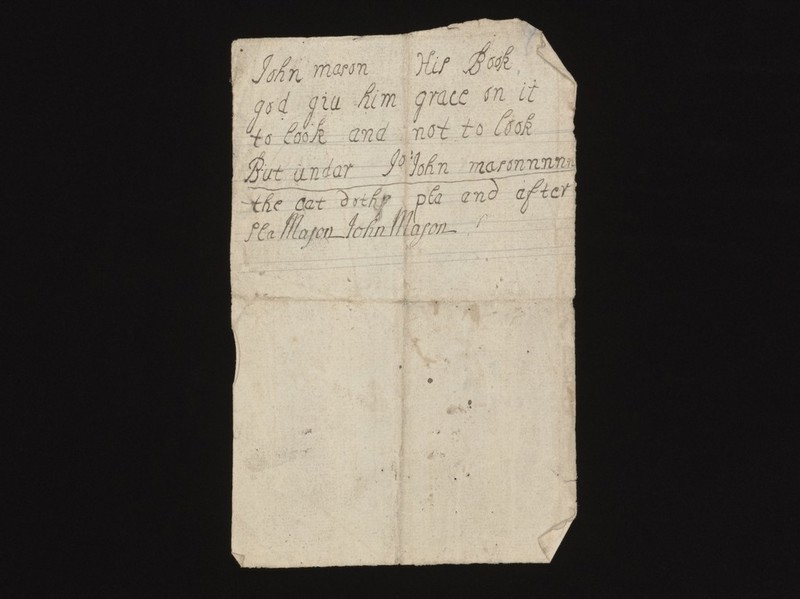 John mason His Book
god giu him grace on it
to look and not to look
But undar Jo John masonnnnn
the cat doth pla and after
sla Mason John Mason